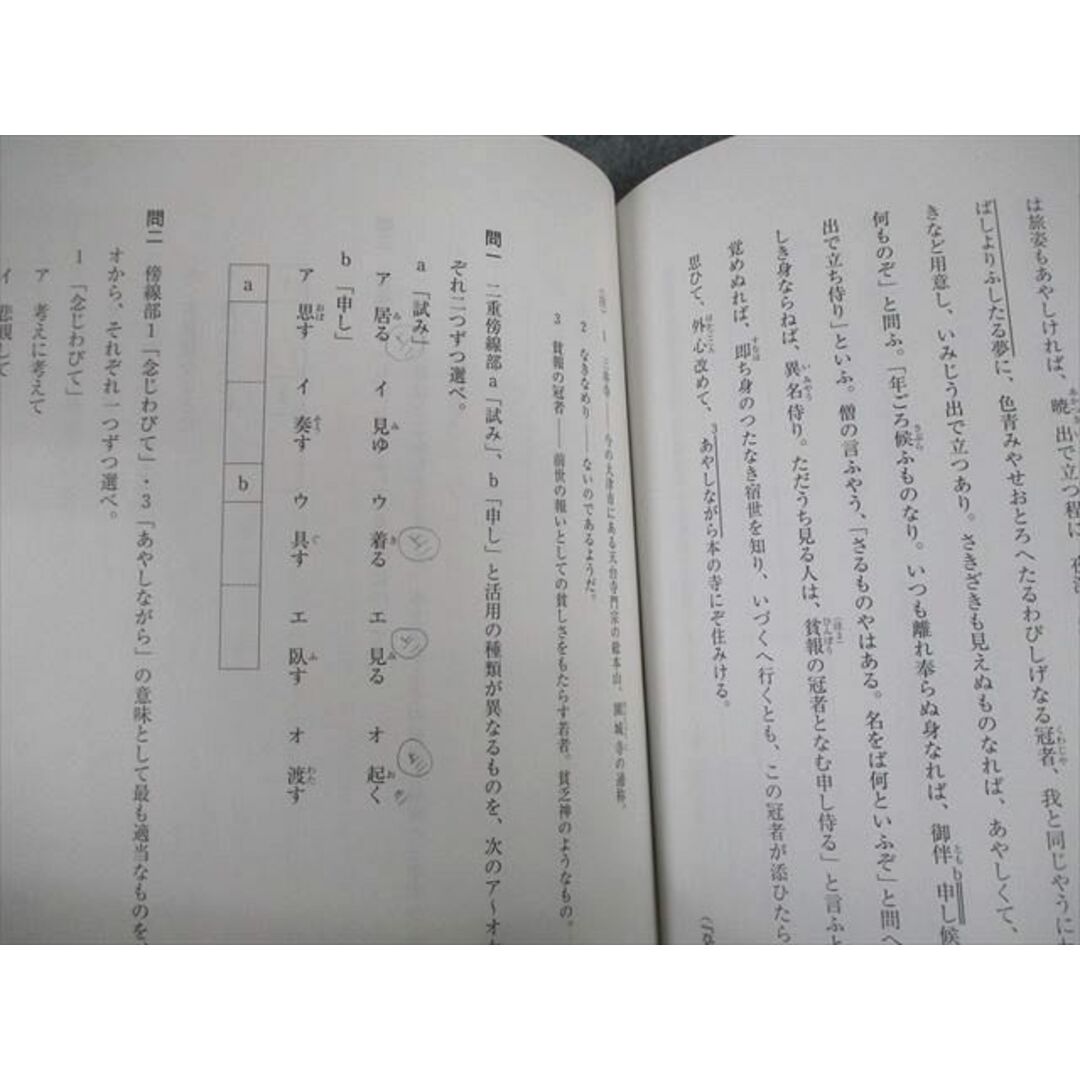 は旅姿もあやしければ、暁出で立つ程に
ばしよりふしたる夢に、色青みやせおとろへたるわびしげなる冠者、我と同じやうに
きなど用意し、いみじう出で立つあり。さきざきも見えぬものなれば、あやしくて、
何ものぞ」と問ふ。「年ごろ候ふものなり。いつも離れ奉らぬ身なれば、御伴b申し候
出で立ち侍り」といふ。僧の言ふやう、「さるものやはある。名をば何といふぞ」と問へ
しき身ならねば、異名侍り。ただうち見る人は、貧報の冠者となむ申し侍る」と言ふと
覚めぬれば、即ち身のつたなき宿世を知り、いづくへ行くとも、この冠者が添ひたら
思ひて、外心改めて、3あやしながら本の寺にぞ住みける。
1 三井寺――今の大津市にある天台寺門宗の総本山、園城寺の通称。
2 なきなめり――ないのであるようだ。
3 貧報の冠者――前世の報いとしての貧しさをもたらす若者。貧乏神のようなもの。
問一 二重傍線部a「試み」、b「申し」と活用の種類が異なるものを、次のア～オか
ぞれ二つずつ選べ。
a「試み」
ア 居る イ 見ゆ ウ 着る エ 見る オ 起く
b「申し」
ア 思す イ 奏す ウ 具す エ 臥す オ 渡す
a b
問二 傍線部1「念じわびて」・3「あやしながら」の意味として最も適当なものを、
オから、それぞれ一つずつ選べ。
1「念じわびて」
ア 考えに考えて
イ 悲観して